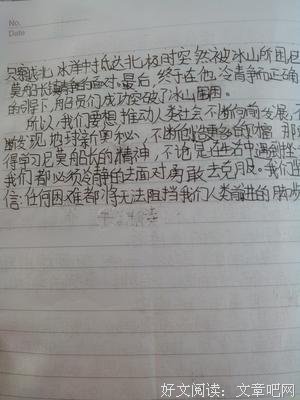 No.
Date
冰洋抵达北极时突然被冰山所困,但
莫船长镇静的面对。最后,终于在他冷青静而正确
的引导下,船员们成功突破了冰山重围。
所以,我们要想推动人类社会不断向前发展,
断发现地球新奥秘,不断创造更多的财富,那
得学习尼莫船长的精神,不论是在生活中遇到挫
我们都必须冷静的去面对,勇敢去克服。我们坚
信:任何困难都将无法阻挡我们人类前进的脚步
好文阅读:文章吧网